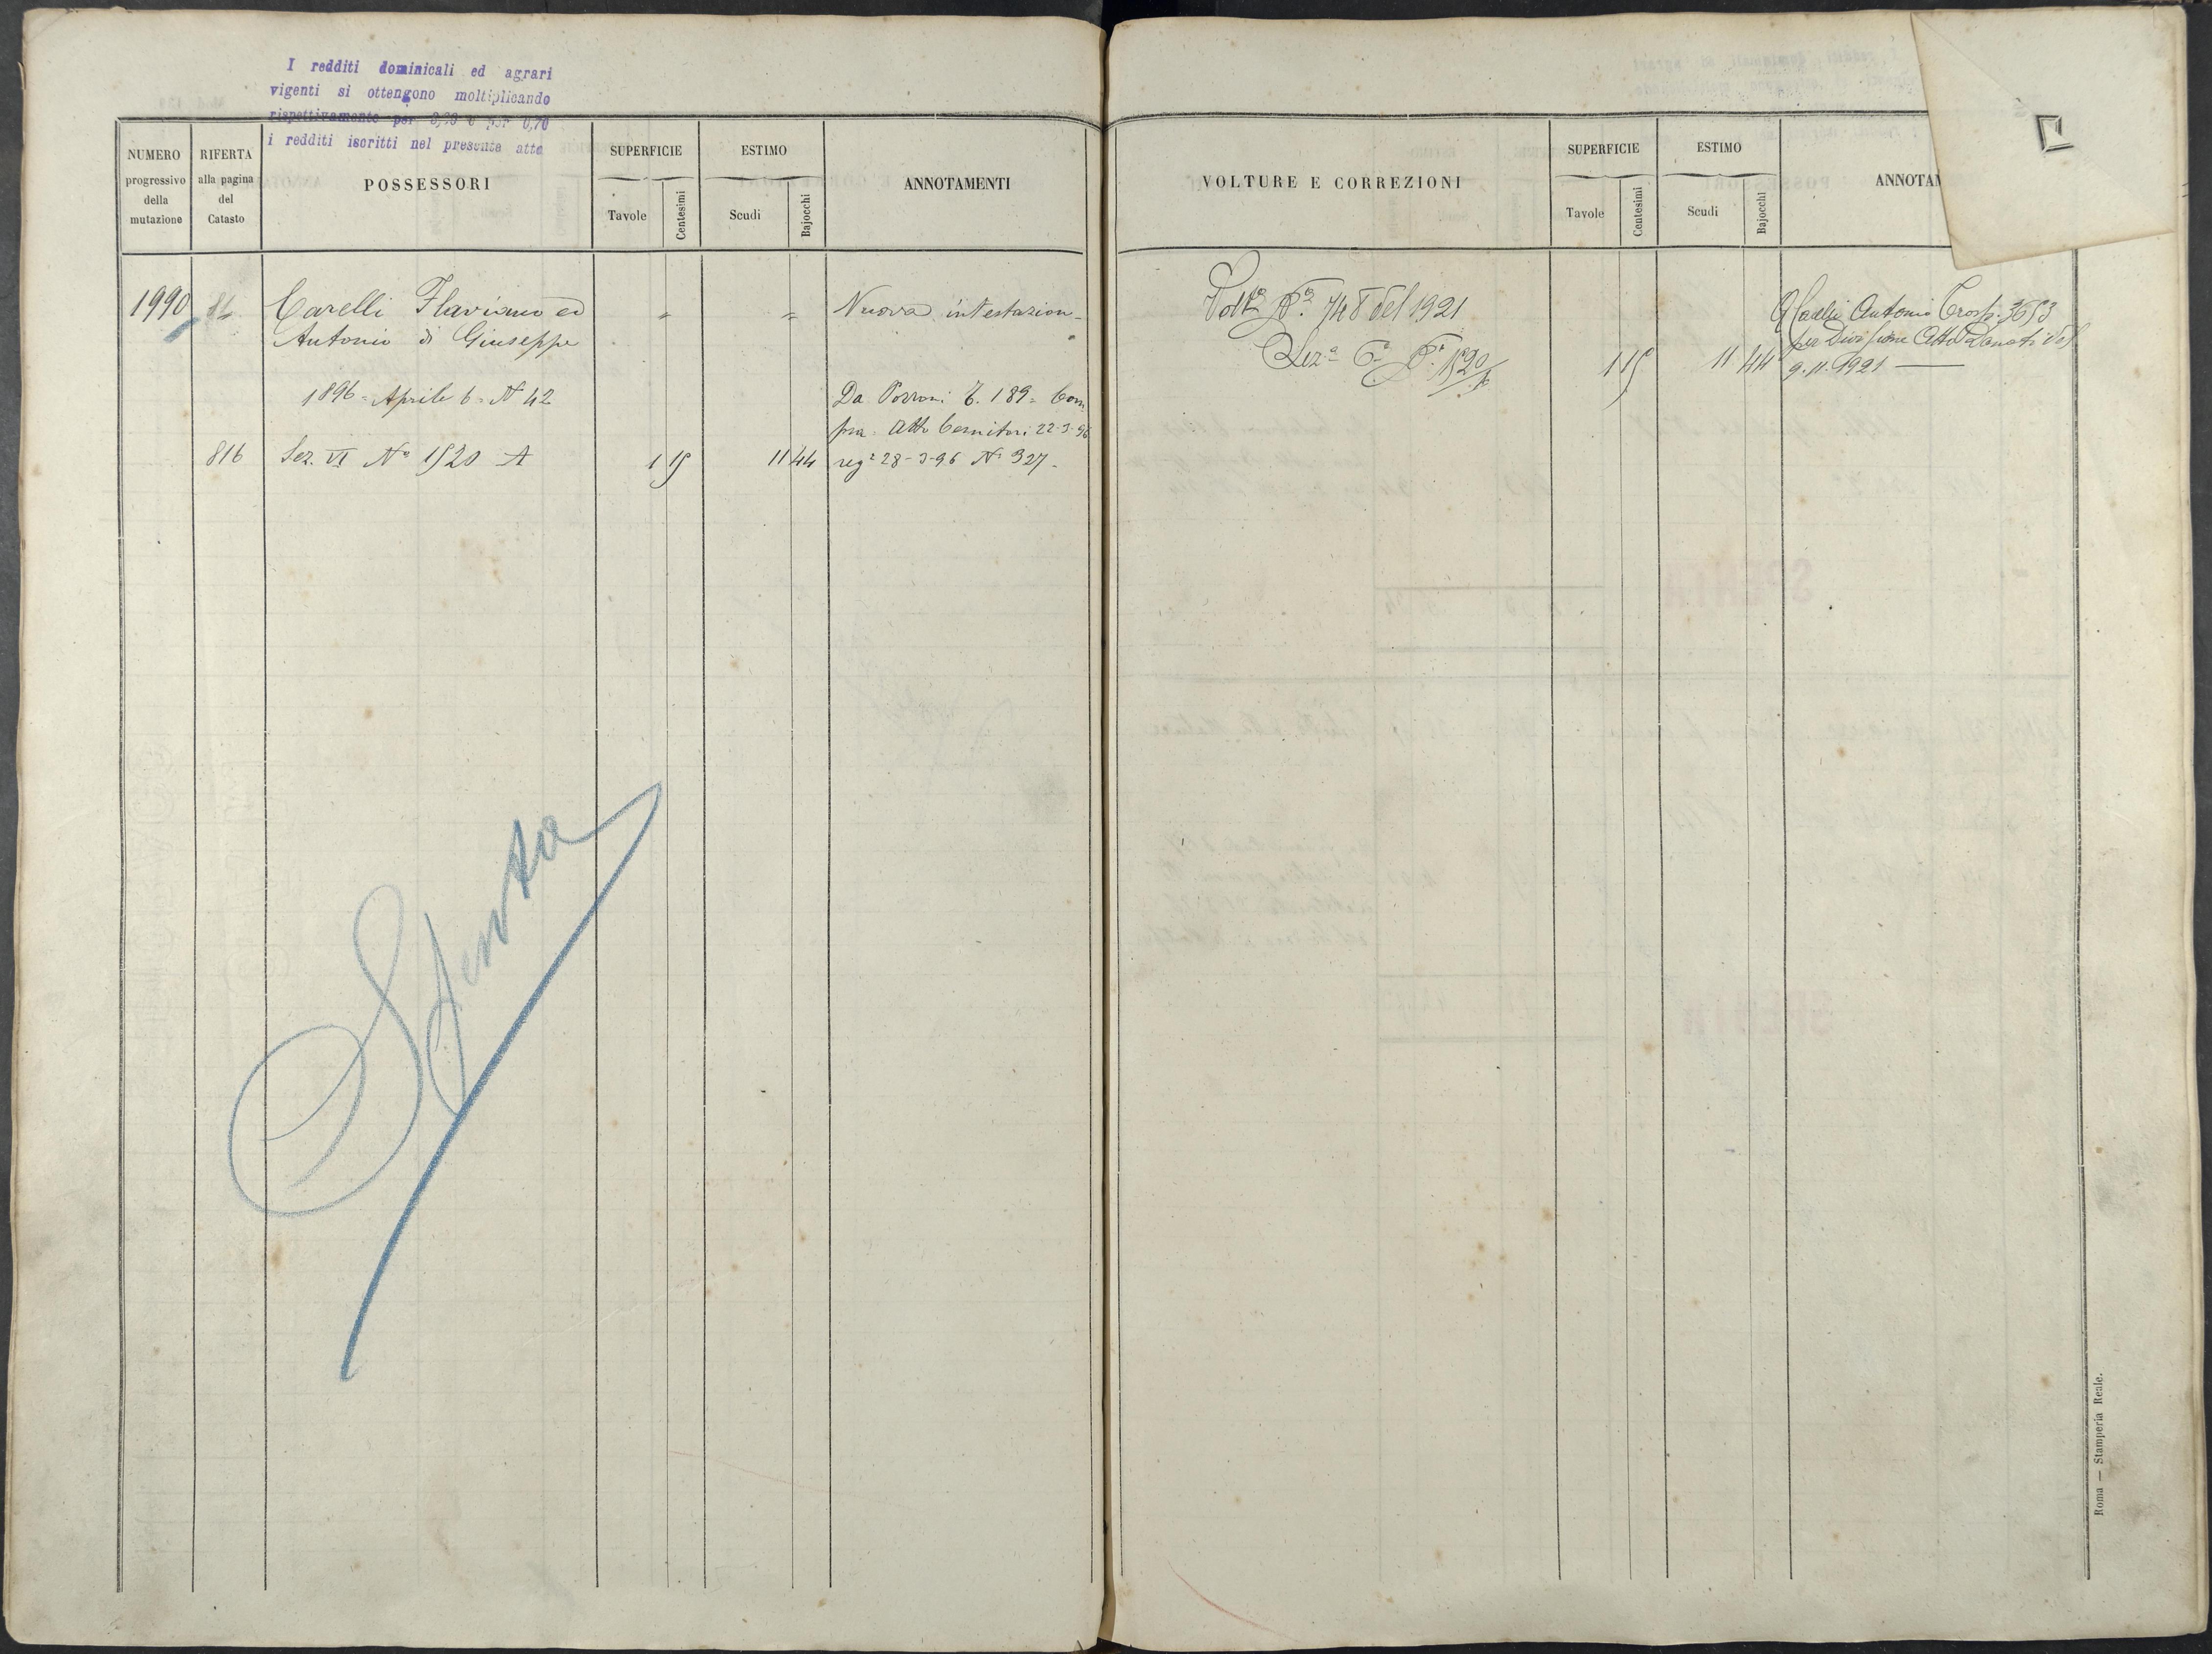 I redditi dominicali ed agrari
vigenti si ottengono moltiplicando
rispettivamente per e per 0,70
i redditi iscritti nel presente atto
NUMERO progressivo della mutazione
RIFERTA alla pagina del Catasto
POSSESSORI
SUPERFICIE
Tavole
Centesimi
ESTIMO
Scudi
Bajocchi
ANNOTAMENTI
1990
Carelli Flaviano ed
Antonio di Giuseppe
" "
Nuova intestazion-
1896 = Aprile 6 = N° 42
Da Porroni T. 189 = Com
pra = Atto Cernitori 22-3-96
816 Sez. VI N° 1520 A 1 15 11 44 reg° 28-3-96 N° 327-
Spenta
VOLTURE E CORREZIONI
SUPERFICIE
Tavole
Centesimi
ESTIMO
Scudi
Bajocchi
ANNOTAM
Voltª Nº 748 del 1921
Sezª 6ª Nº 1520/A 1 15 11 44
A Caelli Antonio Trasp. 3653
per Divisione Atto Donati del
9.11.1921
Roma — Stamperia Reale.